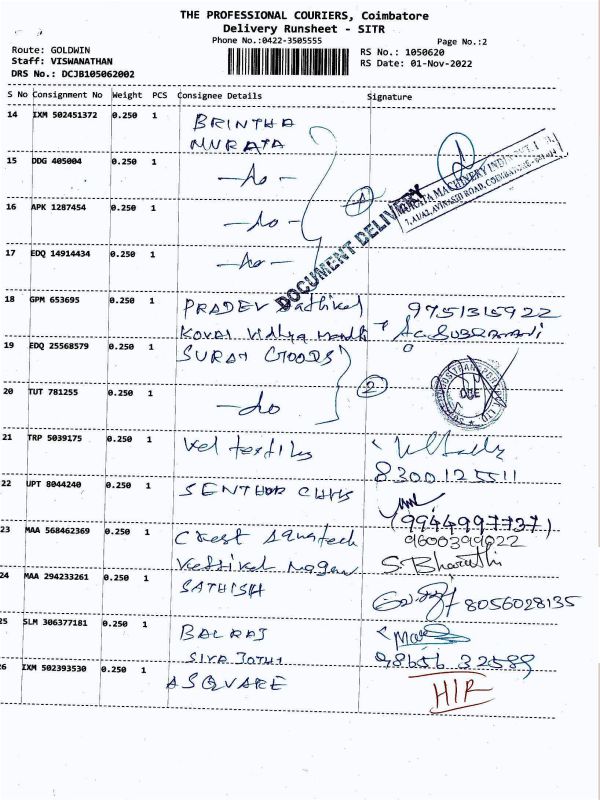 THE PROFESSIONAL COURIERS, Coimbatore
Delivery Runsheet - SITR
Phone No.:0422-3505555 Page No.:2
Route: GOLDWIN RS No.: 1050620
Staff: VISWANATHAN RS Date: 01-Nov-2022
DRS No.: DCJB105062002
S No Consignment No Weight PCS Consignee Details Signature
14 IXM 502451372 0.250 1 BRINTHA
MURATA
15 DDG 405004 0.250 1 -do-
16 APK 1287454 0.250 1 -do-
17 EDQ 14914434 0.250 1 -do-
DOCUMENT DELIVERY
MURATA MACHINERY INDIA PVT. LTD.
AVINASHI ROAD, COIMBATORE
18 GPM 653695 0.250 1 PRADEV 9751315922
KOVAI Vidhya
19 EDQ 25568579 0.250 1 SURAT GOODS
20 TUT 781255 0.250 1 -do 2
21 TRP 5039175 0.250 1 Vel textiles
8300125511
22 UPT 8044240 0.250 1 SENTHUR
(9944997737)
23 MAA 568462369 0.250 1 Crest Aquatech 9600399022
Nagar S. Bharathi
24 MAA 294233261 0.250 1 SATHISH
8056028135
25 SLM 306377181 0.250 1 BALRAJ
SIVA JOTHI 98656 32589
26 IXM 502393530 0.250 1 A SQUARE HIR